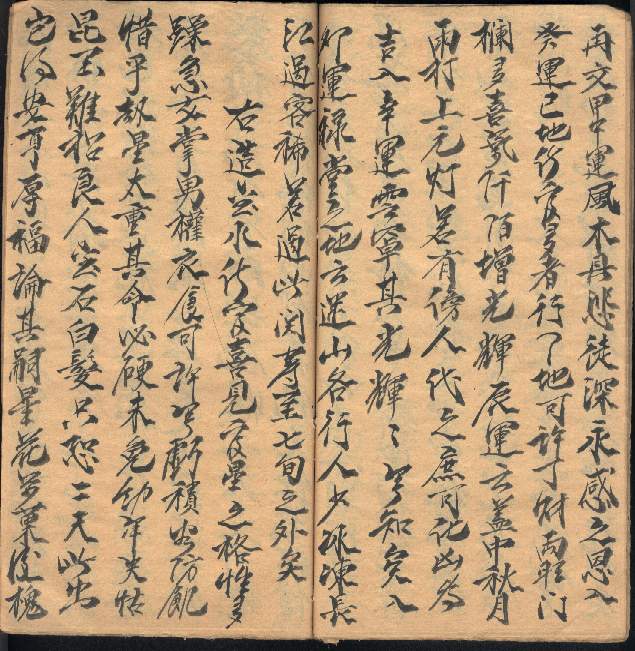 再交甲申運風木具悲徒深永感之恩入
癸運巳地行官多者行丁地可許丁財兩旺门
欄多喜氣阡陌增光輝辰運云蓋中秋月
雨打上元灯若有傍人代之庶可化凶為
吉入辛運雪罩其光輝〻兮知宛入
卯運祿堂之地云逆山各行人少冰凍長
江過客稀若過此関壽至七旬之外矣
右造並水行官喜見官星之格性多
躁急女掌男權衣食可許兮虧積出防飢
惜乎劫星太重其命必硬未免幼年失怙
昆玉難招良人出石白髮只恐二天此出
它得安享厚福論其嗣星花多菓落槐